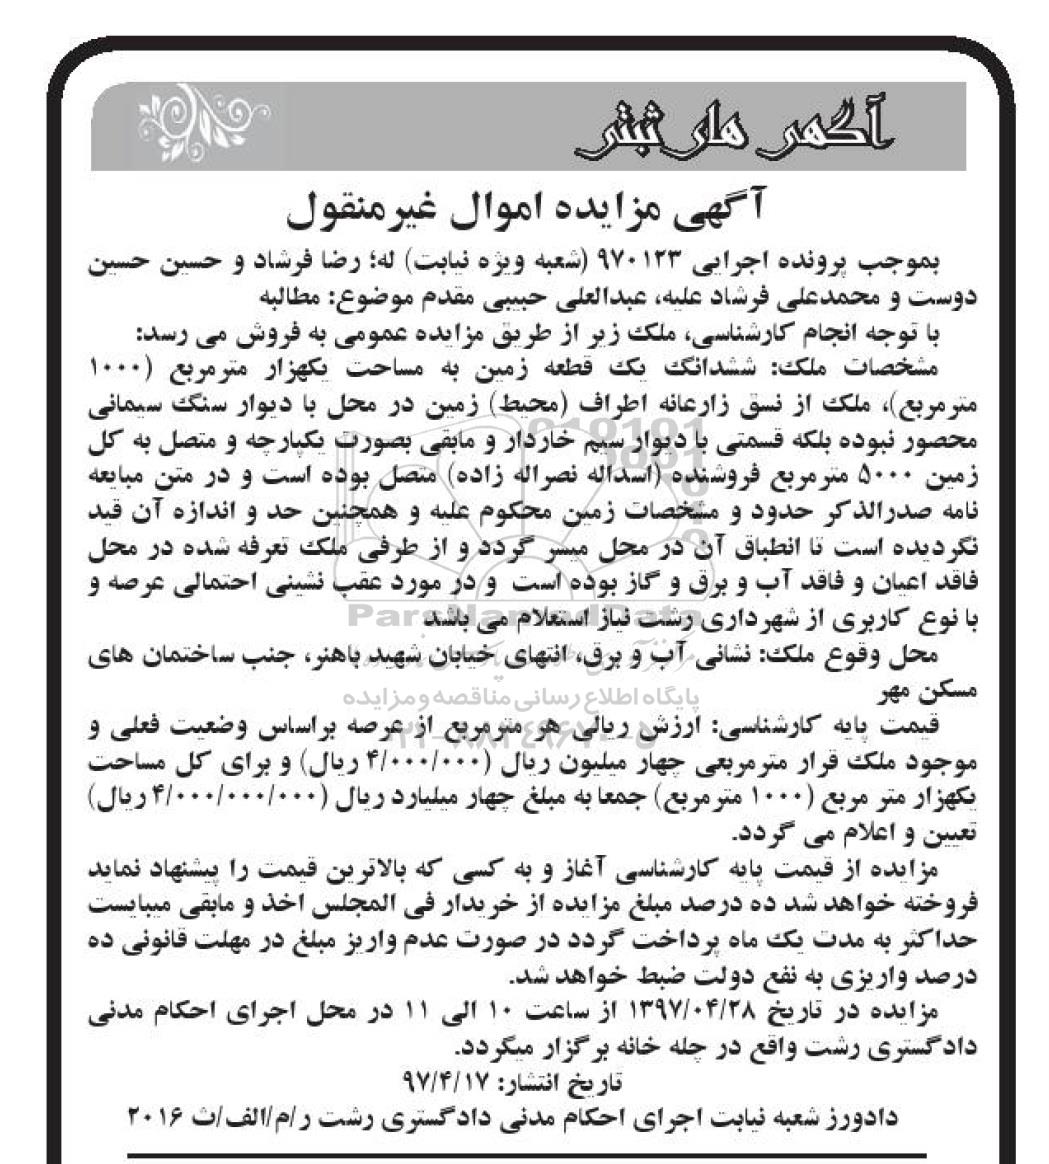 آگهی های ثبتی
آگهی مزایده اموال غیرمنقول
بموجب پرونده اجرایی ۹۷۰۱۲۳ (شعبه ویژه نیابت) له؛ رضا فرشاد و حسین حسین
دوست و محمدعلی فرشاد علیه، عبدالعلی حبیبی مقدم موضوع: مطالبه
با توجه انجام کارشناسی، ملک زیر از طریق مزایده عمومی به فروش می رسد:
مشخصات ملک: ششدانگ یک قطعه زمین به مساحت یکهزار مترمربع (۱۰۰۰
مترمربع)، ملک از نسق زارعانه اطراف (محیط) زمین در محل با دیوار سنگ سیمانی
محصور نبوده بلکه قسمتی با دیوار سیم خاردار و مابقی بصورت یکپارچه و متصل به کل
زمین ۵۰۰۰ مترمربع فروشنده (اسداله نصراله زاده) متصل بوده است و در متن مبایعه
نامه صدرالذکر حدود و مشخصات زمین محکوم علیه و همچنین حد و اندازه آن قید
نگردیده است تا انطباق آن در محل میسر گردد و از طرفی ملک تعرفه شده در محل
فاقد اعیان و فاقد آب و برق و گاز بوده است و در مورد عقب نشینی احتمالی عرصه و
با نوع کاربری از شهرداری رشت نیاز استعلام می باشد
ParsNamadData
محل وقوع ملک: نشانی آب و برق، انتهای خیابان شهید باهنر، جنب ساختمان های
مسکن مهر
پایگاه اطلاع رسانی مناقصه و مزایده
قیمت پایه کارشناسی: ارزش ریالی هو مترمربع از عرصه براساس وضعیت فعلی و
۰۲۱-۸۸۳۴۹۶۷۰-۵
موجود ملک قرار مترمربعی چهار میلیون ریال (۴/۰۰۰/۰۰۰ ریال) و برای کل مساحت
یکهزار متر مربع (۱۰۰۰ مترمربع) جمعا به مبلغ چهار میلیارد ریال (۴/۰۰۰/۰۰۰/۰۰۰ ریال)
تعیین و اعلام می گردد.
مزایده از قیمت پایه کارشناسی آغاز و به کسی که بالاترین قیمت را پیشنهاد نماید
فروخته خواهد شد ده درصد مبلغ مزایده از خریدار فی المجلس اخذ و مابقی میبایست
حداکثر به مدت یک ماه پرداخت گردد در صورت عدم واریز مبلغ در مهلت قانونی ده
درصد واریزی به نفع دولت ضبط خواهد شد.
مزایده در تاریخ ۱۳۹۷/۰۴/۲۸ از ساعت ۱۰ الی ۱۱ در محل اجرای احکام مدنی
دادگستری رشت واقع در چله خانه برگزار میگردد.
تاریخ انتشار: ۹۷/۴/۱۷
دادورز شعبه نیابت اجرای احکام مدنی دادگستری رشت ر/م/الف/ث ۲۰۱۶